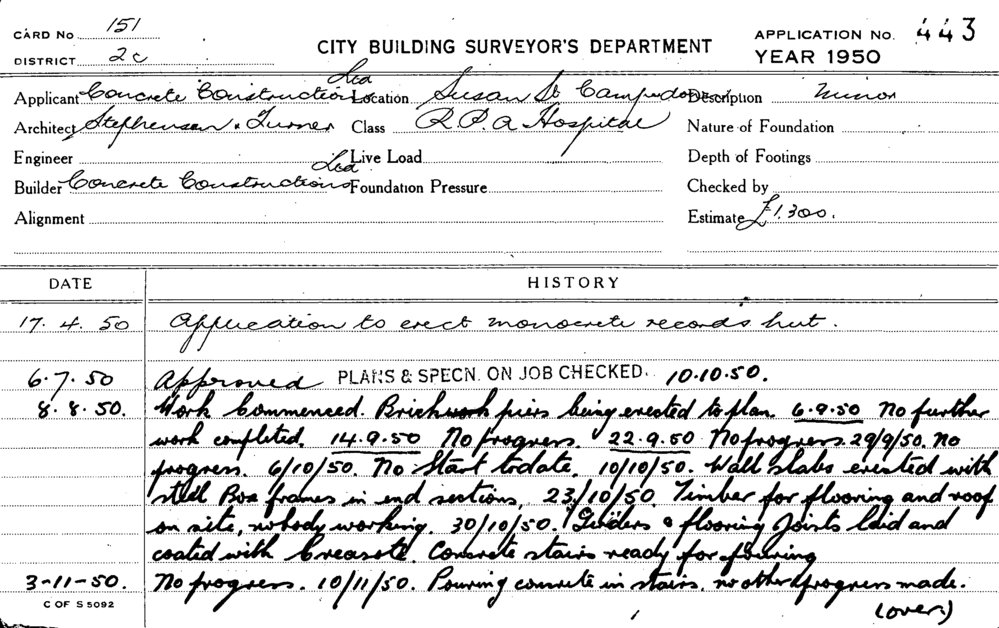 CARD No. 151
DISTRICT 2c
CITY BUILDING SURVEYOR'S DEPARTMENT
APPLICATION No. 443
YEAR 1950
Applicant Concrete Constructions Ltd Location Susan St Camperdown Description Minor
Architect Stephenson & Turner Class R.P.A Hospital Nature of Foundation
Engineer Live Load Depth of Footings
Builder Concrete Constructions Ltd Foundation Pressure Checked by
Alignment Estimate £1,300.
DATE HISTORY
17. 4. 50 Application to erect monocrete records hut.
6. 7. 50 Approved PLANS & SPECN. ON JOB CHECKED. 10.10.50.
8. 8. 50. Work Commenced. Brickwork piers being erected to plan. 6.9.50 No further
work completed. 14.9.50 No progress. 22.9.50 No progress. 29/9/50. No
progress. 6/10/50. No Start to date. 10/10/50. Wall slabs erected with
steel Box frames in end sections. 23/10/50. Timber for flooring and roof
on site, nobody working. 30/10/50. Girders & flooring Joists laid and
coated with Creosote. Concrete stairs ready for pouring
3-11-50. No progress. 10/11/50. Pouring concrete in stairs. no other progress made.
(over)
C OF S 5092